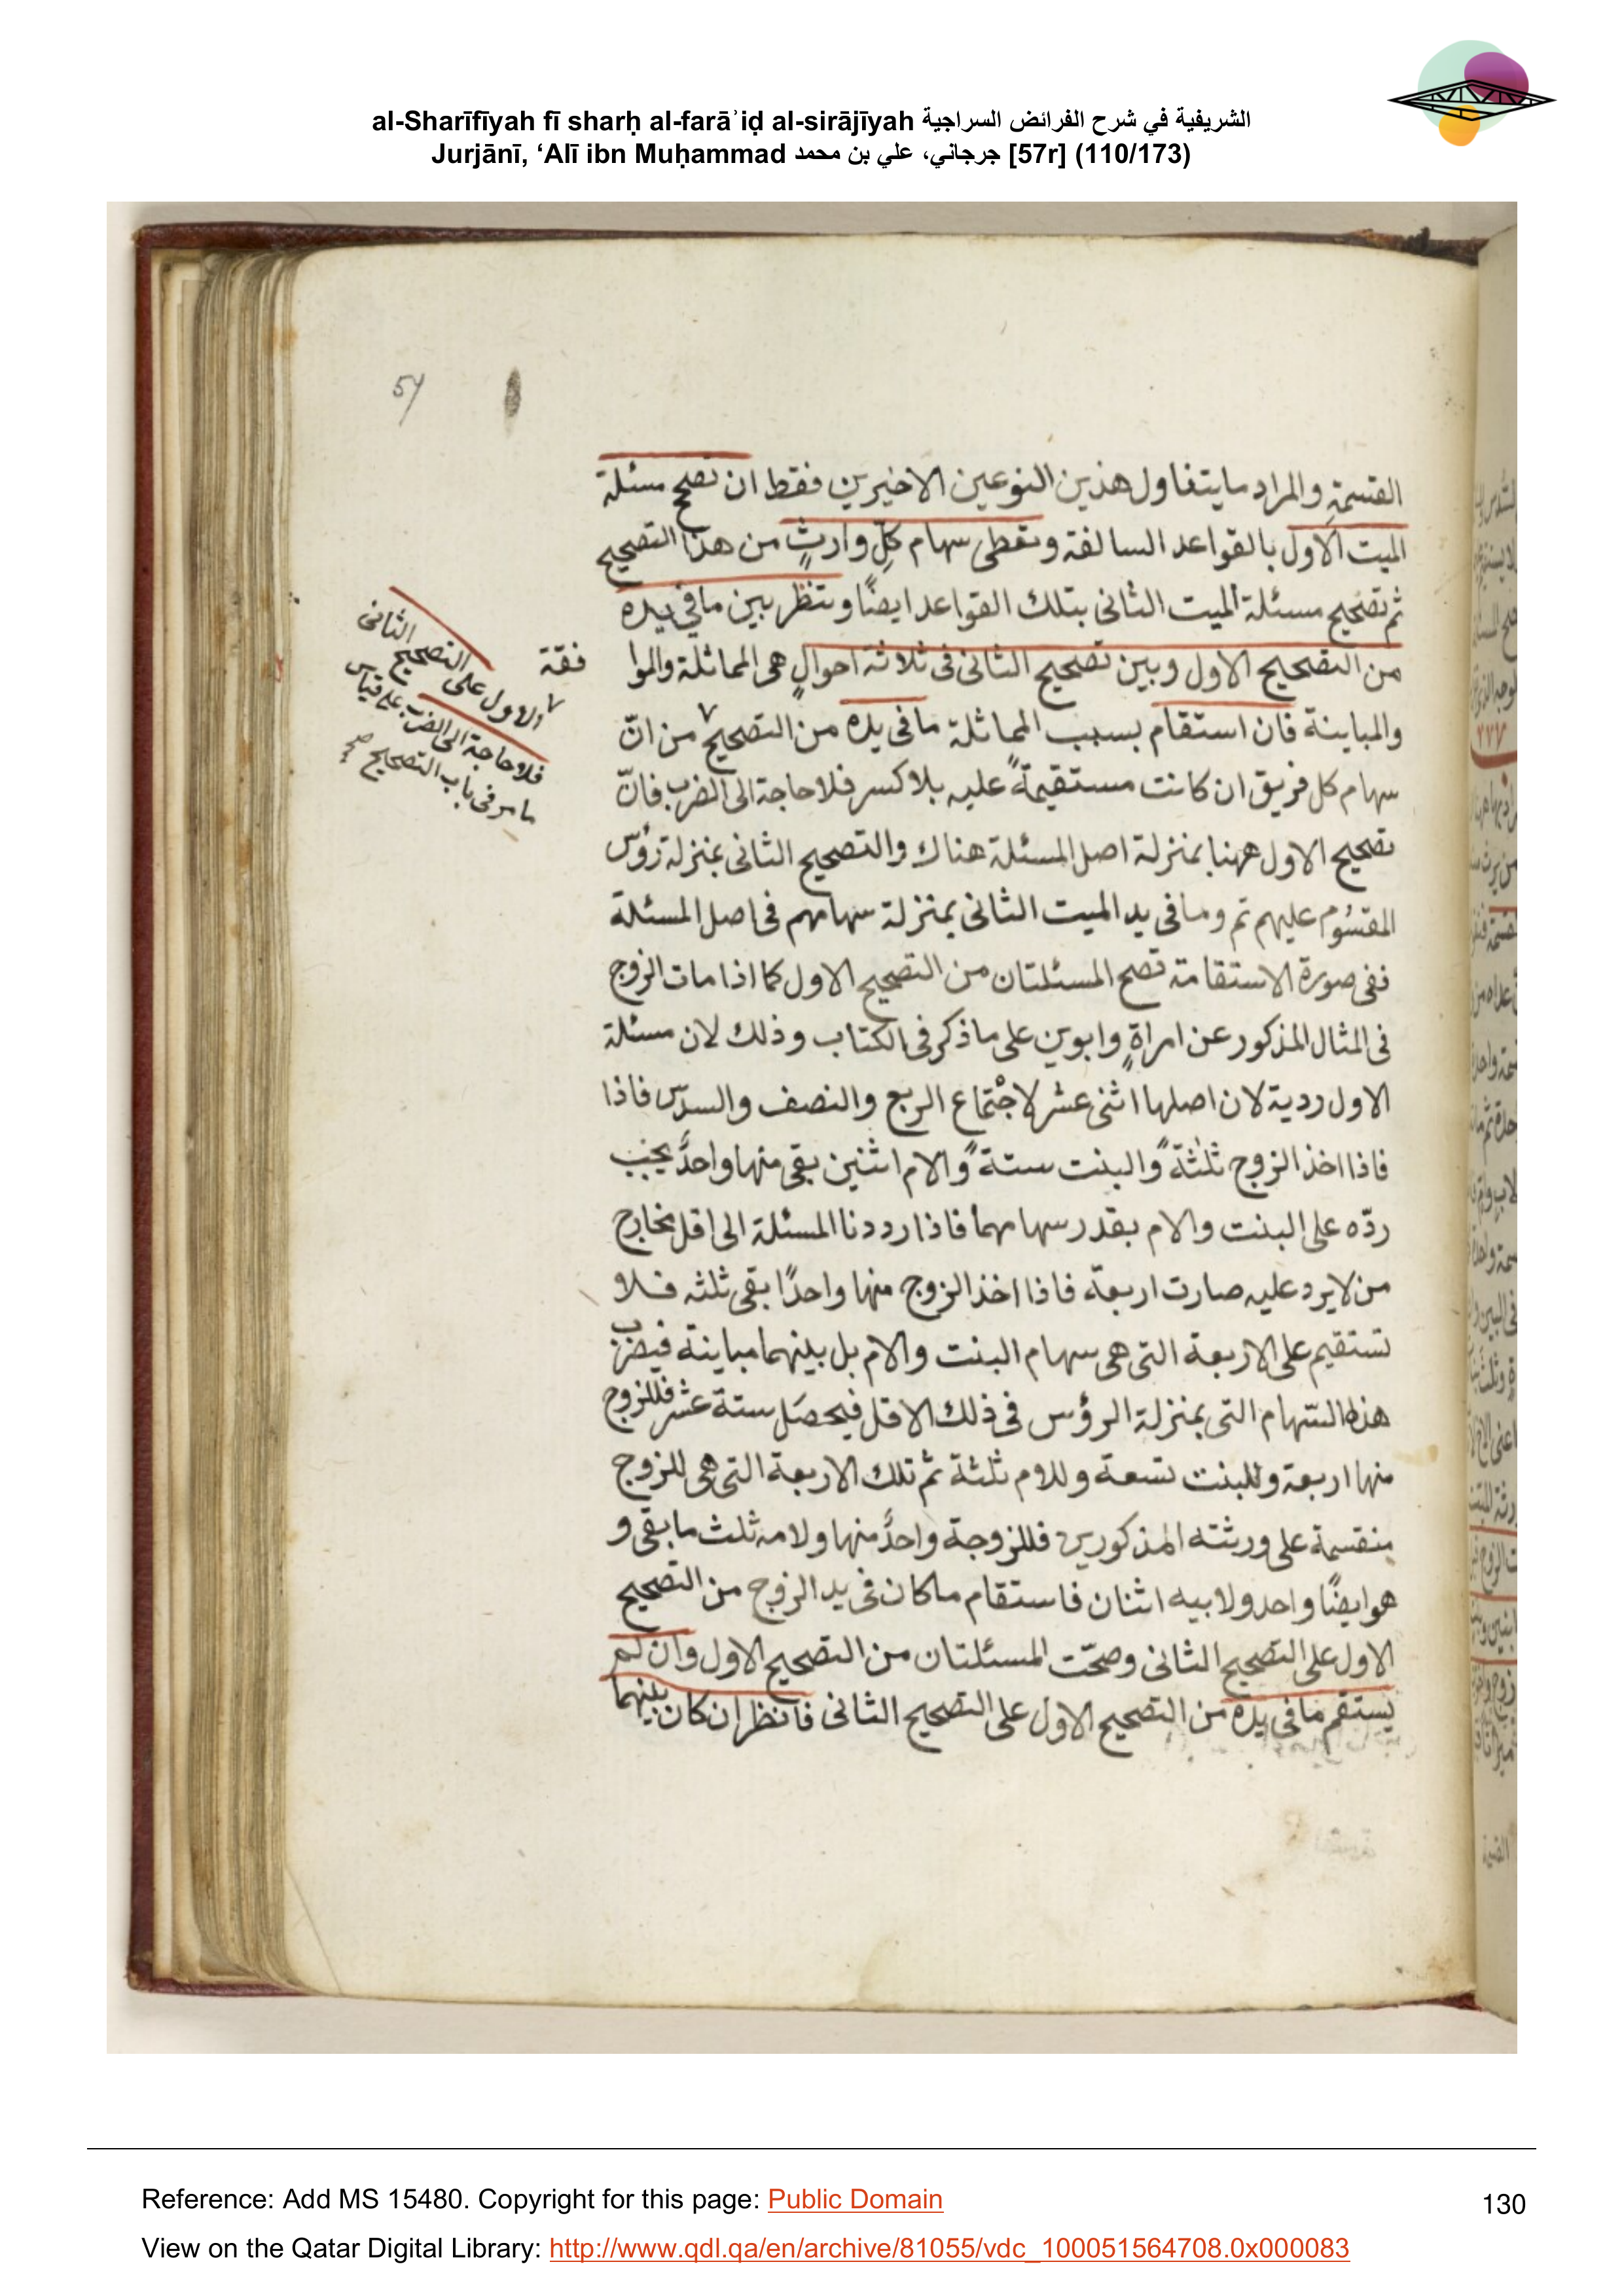 al-Sharīfīyah fī sharḥ al-farāʾiḍ al-sirājīyah الشريفية في شرح الفرائض السراجية
Jurjānī, ‘Alī ibn Muḥammad جرجاني، علي بن محمد [57r] (110/173)
57
القسمة والمراد ما يتناول هذين النوعين الاخيرين فقط ان تصح مسئلة
الميت الاول بالقواعد السالفة وتعطى سهام كلِّ وارثٍ من هذا التصحيح
ثم تصحيح مسئلة الميت الثانى بتلك القواعد ايضًا وتنظر بين ما في يده
من التصحيح الاول وبين تصحيح الثانى فى ثلاثة احوالٍ هى المماثلة والموا
فقة
والمباينة فان استقام بسبب المماثلة ما فى يده من التصحيح ٧ من انّ
٧ الاول على التصحيح الثانى
فلا حاجة الى الضرب على قياس
ما مر فى باب التصحيح صح
سهام كل فريق ان كانت مستقيمةً عليه بلا كسر فلا حاجة الى الضرب فانّ
تصحيح الاول ههنا بمنزلة اصل المسئلة هناك والتصحيح الثانى بمنزلة رؤس
المقسُوم عليهم ثم وما فى يد الميت الثانى بمنزلة سهامهم فى اصل المسئلة
ففى صورة الاستقامة تصح المسئلتان من التصحيح الاول كما اذا مات الزوج
فى المثال المذكور عن امراةٍ وابوين على ما ذكر فى الكتاب وذلك لان مسئلة
الاول ردية لان اصلها اثنى عشر لاجْتماع الربع والنصف والسدس فاذا
فاذا اخذ الزوج ثلثةً والبنت ستةً والام اثنين بقى منها واحدٌ يجب
ردّه على البنت والام بقدر سهامهما فاذا رددنا المسئلة الى اقل مخارج
من لا يرد عليه صارت اربعة فاذا اخذ الزوج منها واحدًا بقى ثلثه فلا
تستقيم على الاربعة التى هى سهام البنت والام بل بينهما مباينة فيضرب
هذه السّهام التى بمنزلة الرؤس فى ذلك الاقل فيحصَل ستة عشر فللزوج
منها اربعة وللبنت تسعة وللام ثلثة ثم تلك الاربعة التى هى للزوج
منقسمة على ورثته المذكورين فللزوجة واحدٌ منها ولامه ثلث ما بقى و
هو ايضًا واحد ولابيه اثنان فاستقام ما كان فى يد الزوج من التصحيح
الاول على التصحيح الثانى وصحّت المسئلتان من التصحيح الاول وان لم
يستقم ما فى يده من التصحيح الاول على التصحيح الثانى فانظر ان كان بينهما
Reference: Add MS 15480. Copyright for this page: Public Domain
130
View on the Qatar Digital Library: http://www.qdl.qa/en/archive/81055/vdc_100051564708.0x000083